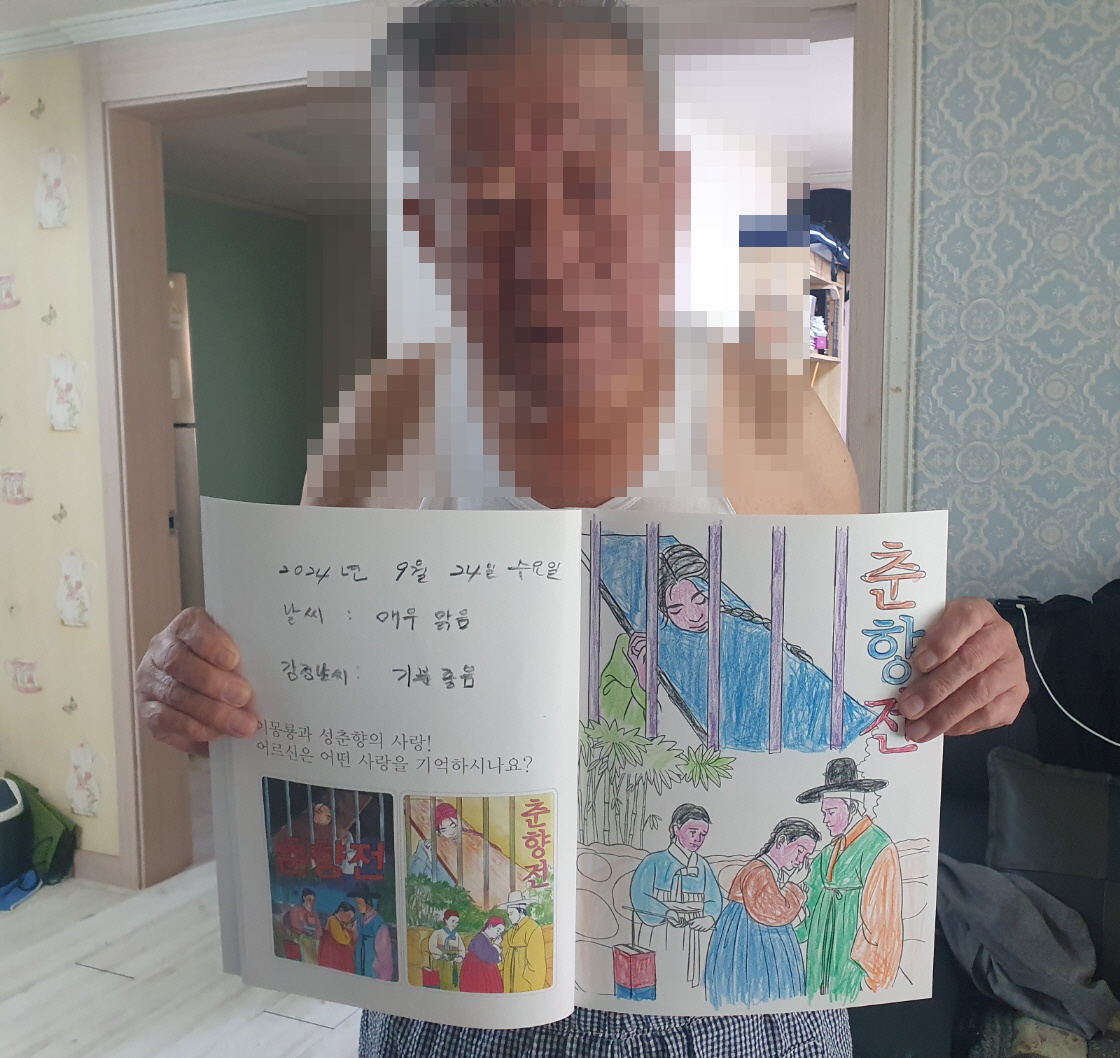 2024년 9월 24일 수요일
날씨 : 매우 맑음
감정날씨 : 기분 좋음
이몽룡과 성춘향의 사랑!
어르신은 어떤 사랑을 기억하시나요?
춘향전
춘향전
춘향전